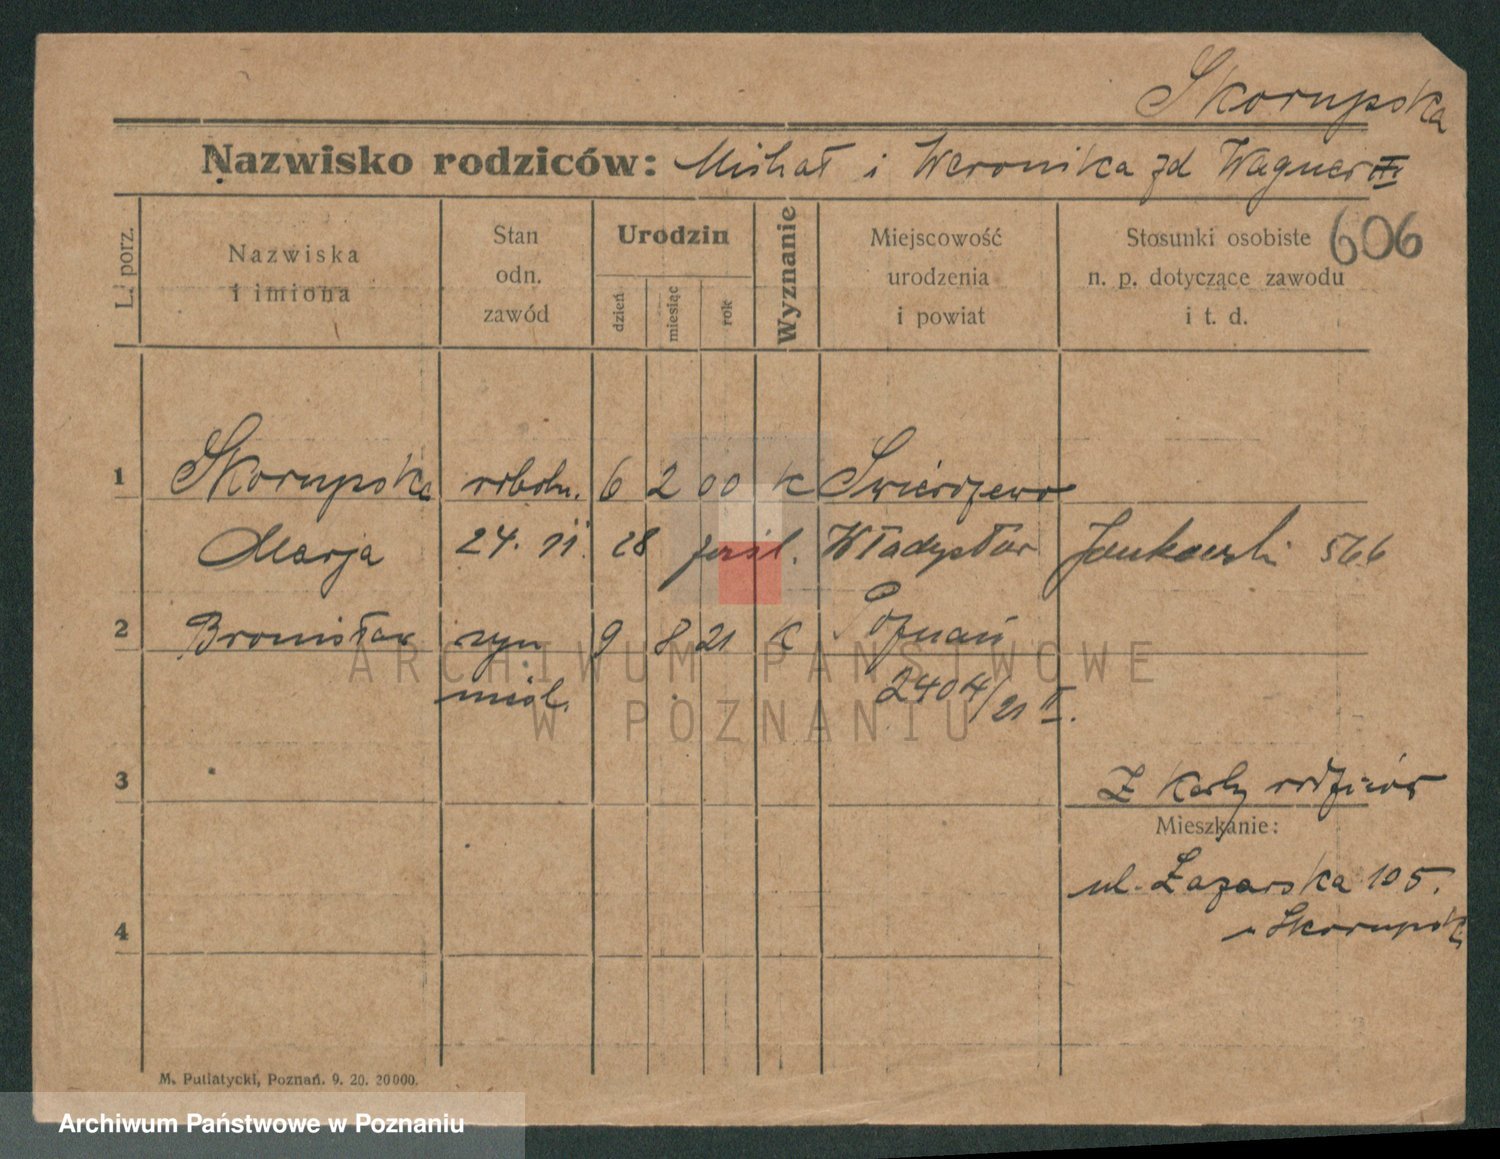 Skorupska
Nazwisko rodziców: Michał i Weronika zd Wagner
606
L. porz.
Nazwiska i imiona
Stan odn. zawód
Urodzin
dzień
miesiąc
rok
Wyznanie
Miejscowość urodzenia i powiat
Stosunki osobiste n. p. dotyczące zawodu i t. d.
1 Skorupska robotn. 6 2 00 K Swierdzewo
Marja 24. 11. 28 Władysław Jankowski 566
2 Bronisław syn 9 8 21 K Poznań
nieśl. 2404/21 II.
3
Z karty rodziców
Mieszkanie:
ul. Łazarska 105.
4
Skorupsk
M. Putiatycki, Poznań. 9. 20. 20000.
ARCHIWUM PAŃSTWOWE
W POZNANIU
Archiwum Państwowe w Poznaniu